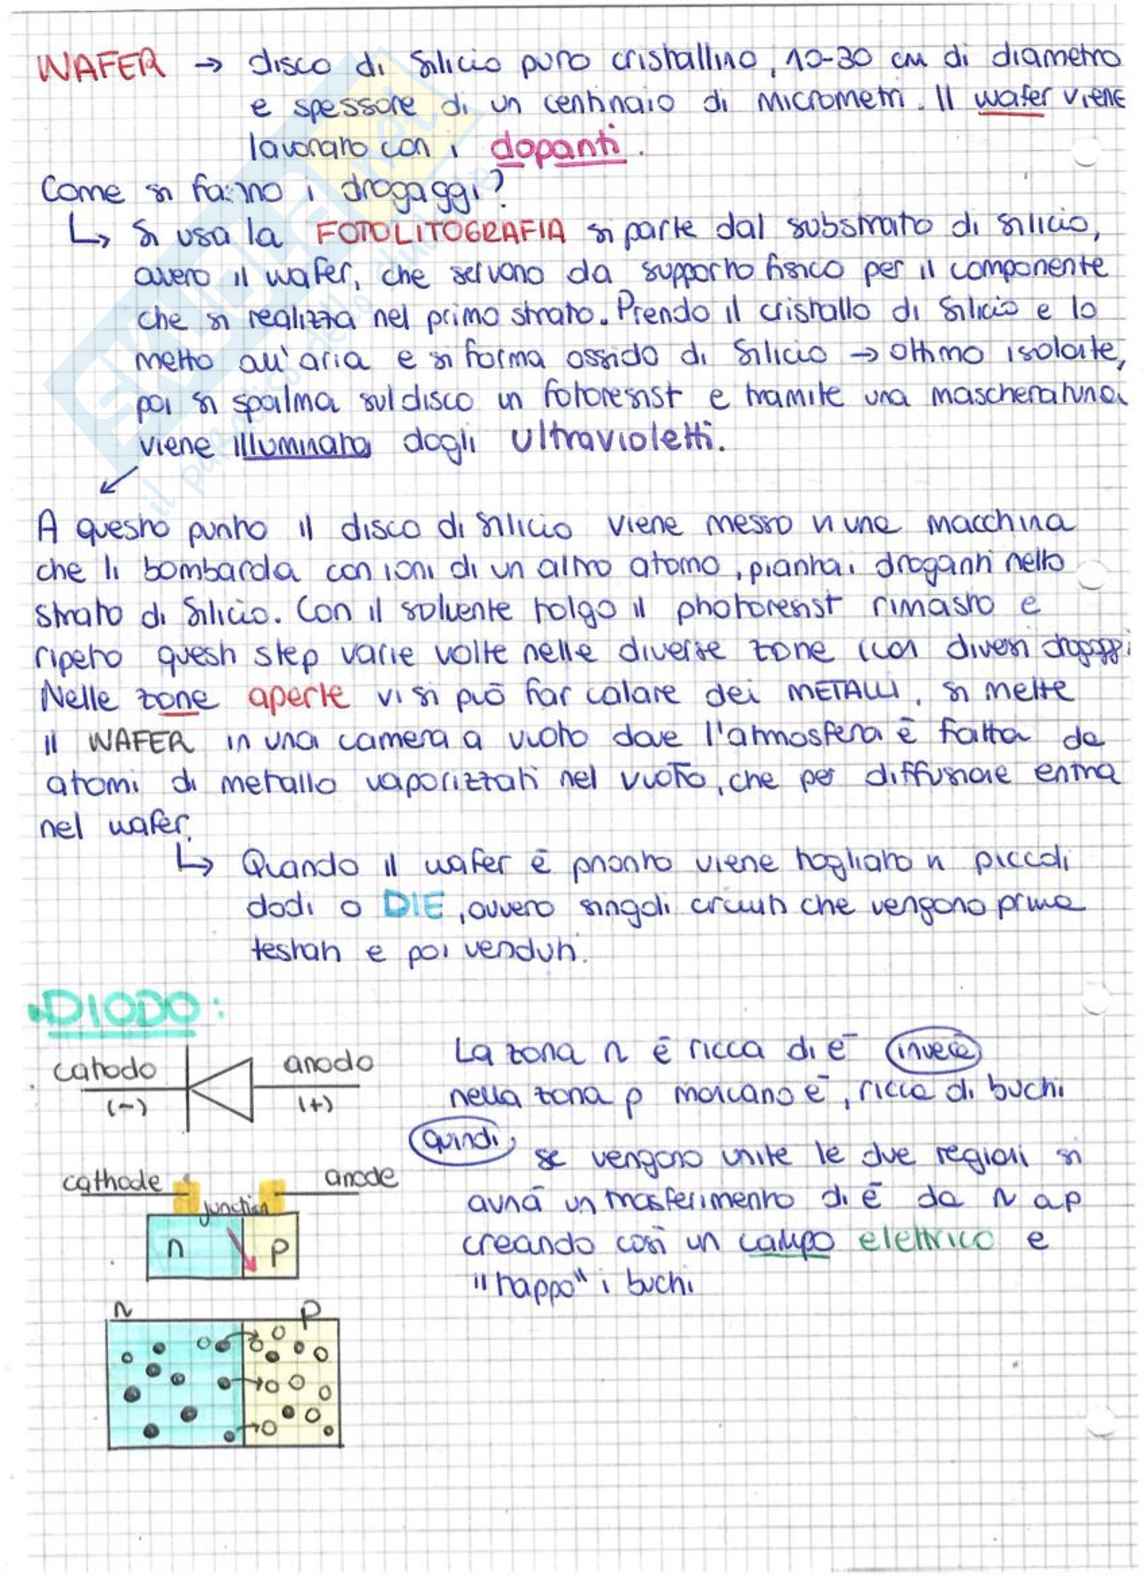 WAFER → disco di silicio puro cristallino, 10-30 cm di diametro
e spessore di un centinaio di micrometri. Il wafer viene
lavorato con i dopanti.
Come si fanno i drogaggi?
↳ Si usa la FOTOLITOGRAFIA si parte dal substrato di silicio,
avero il wafer, che servono da supporto fisico per il componente
che si realizza nel primo strato. Prendo il cristallo di silicio e lo
metto all'aria e si forma ossido di silicio → ottimo isolante,
poi si spalma sul disco un fotoresist e tramite una mascheratura
viene illuminato dagli ultravioletti.
A questo punto il disco di silicio viene messo in una macchina
che li bombarda con ioni di un altro atomo, piantai droganti nello
strato di silicio. Con il solvente tolgo il photoresist rimasto e
ripeto questi step varie volte nelle diverse zone con diversi drogaggi
Nelle zone aperte vi si può far calare dei METALLI, si mette
il WAFER in una camera a vuoto dove l'atmosfera è fatta da
atomi di metallo vaporizzati nel vuoto, che per diffusione entra
nel wafer.
↳ Quando il wafer è pronto viene tagliato in piccoli
dadi o DIE, ovvero singoli circuiti che vengono prima
testati e poi venduti.
DIODO:
catodo anodo
(-) (+)
La zona n è ricca di e⁻ invece
nella zona p mancano e⁻, ricca di buchi
quindi se vengono unite le due regioni si
avrà un trasferimento di e⁻ da n a p
creando così un campo elettrico e
"tappo" i buchi
cathode anode
junction
n p
N P